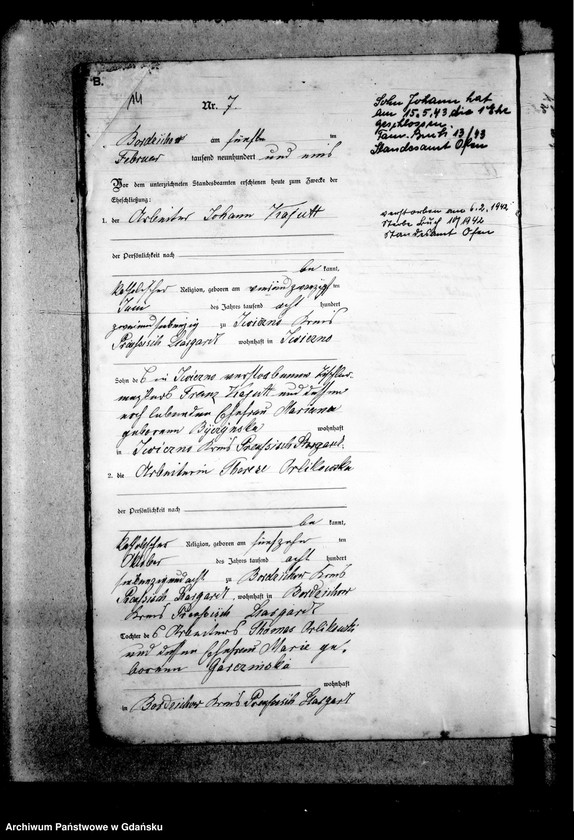 B.
14
Nr. 7
Bordzichow am fünften
Februar tausend neunhundert und eins
Vor dem unterzeichneten Standesbeamten erschienen heute zum Zwecke der
Eheschließung:
1. der Arbeiter Johann
der Persönlichkeit nach
be kannt,
katholischer Religion, geboren am vierundzwanzigsten
Juni des Jahres tausend acht hundert
zweiundsiebenzig zu Kreis
Preußisch Stargard wohnhaft in
Sohn des in verstorbenen
Franz und dessen
noch lebenden Ehefrau Marianna
geborenen wohnhaft
in Kreis Preußisch Stargard
2. die Arbeiterin Therese Orlikowska
der Persönlichkeit nach
be kannt,
katholischer Religion, geboren am fünfzehn ten
Oktober des Jahres tausend acht hundert
siebenzigundacht zu Bordzichow Kreis
Preußisch Stargard, wohnhaft in Bordzichow
Kreis Preußisch Stargard
Tochter des Arbeiters Thomas Orlikowski
und dessen Ehefrau Marie ge-
borenen
wohnhaft
in Bordzichow Kreis Preußisch Stargard
Sohn Johann hat
am 15.5.43 die 1. Ehe
geschlossen
Fam. Buch 13/43
Standesamt Ofen
verstorben am 6.2.1942
Sterbe Buch 10/1942
Standesamt Ofen
Archiwum Państwowe w Gdańsku